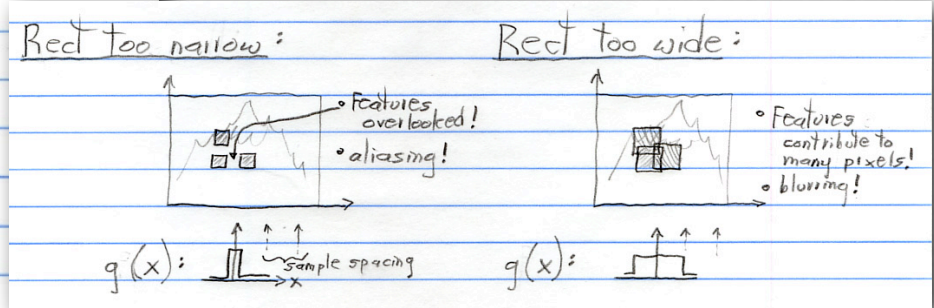 Rect too narrow:
• Features
overlooked!
• aliasing!
g(x):
sample spacing
x
Rect too wide:
• Features
contribute to
many pixels!
• blurring!
g(x):